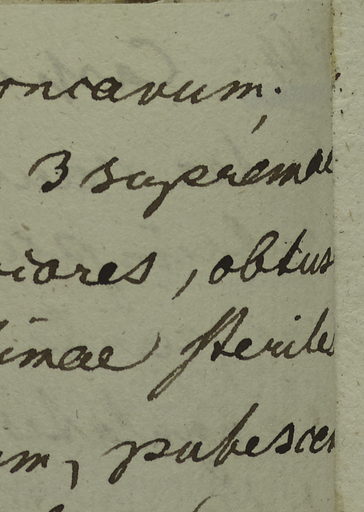 oncavum;
3 supremae
iores, obtus
imae steriles
um, pubescen